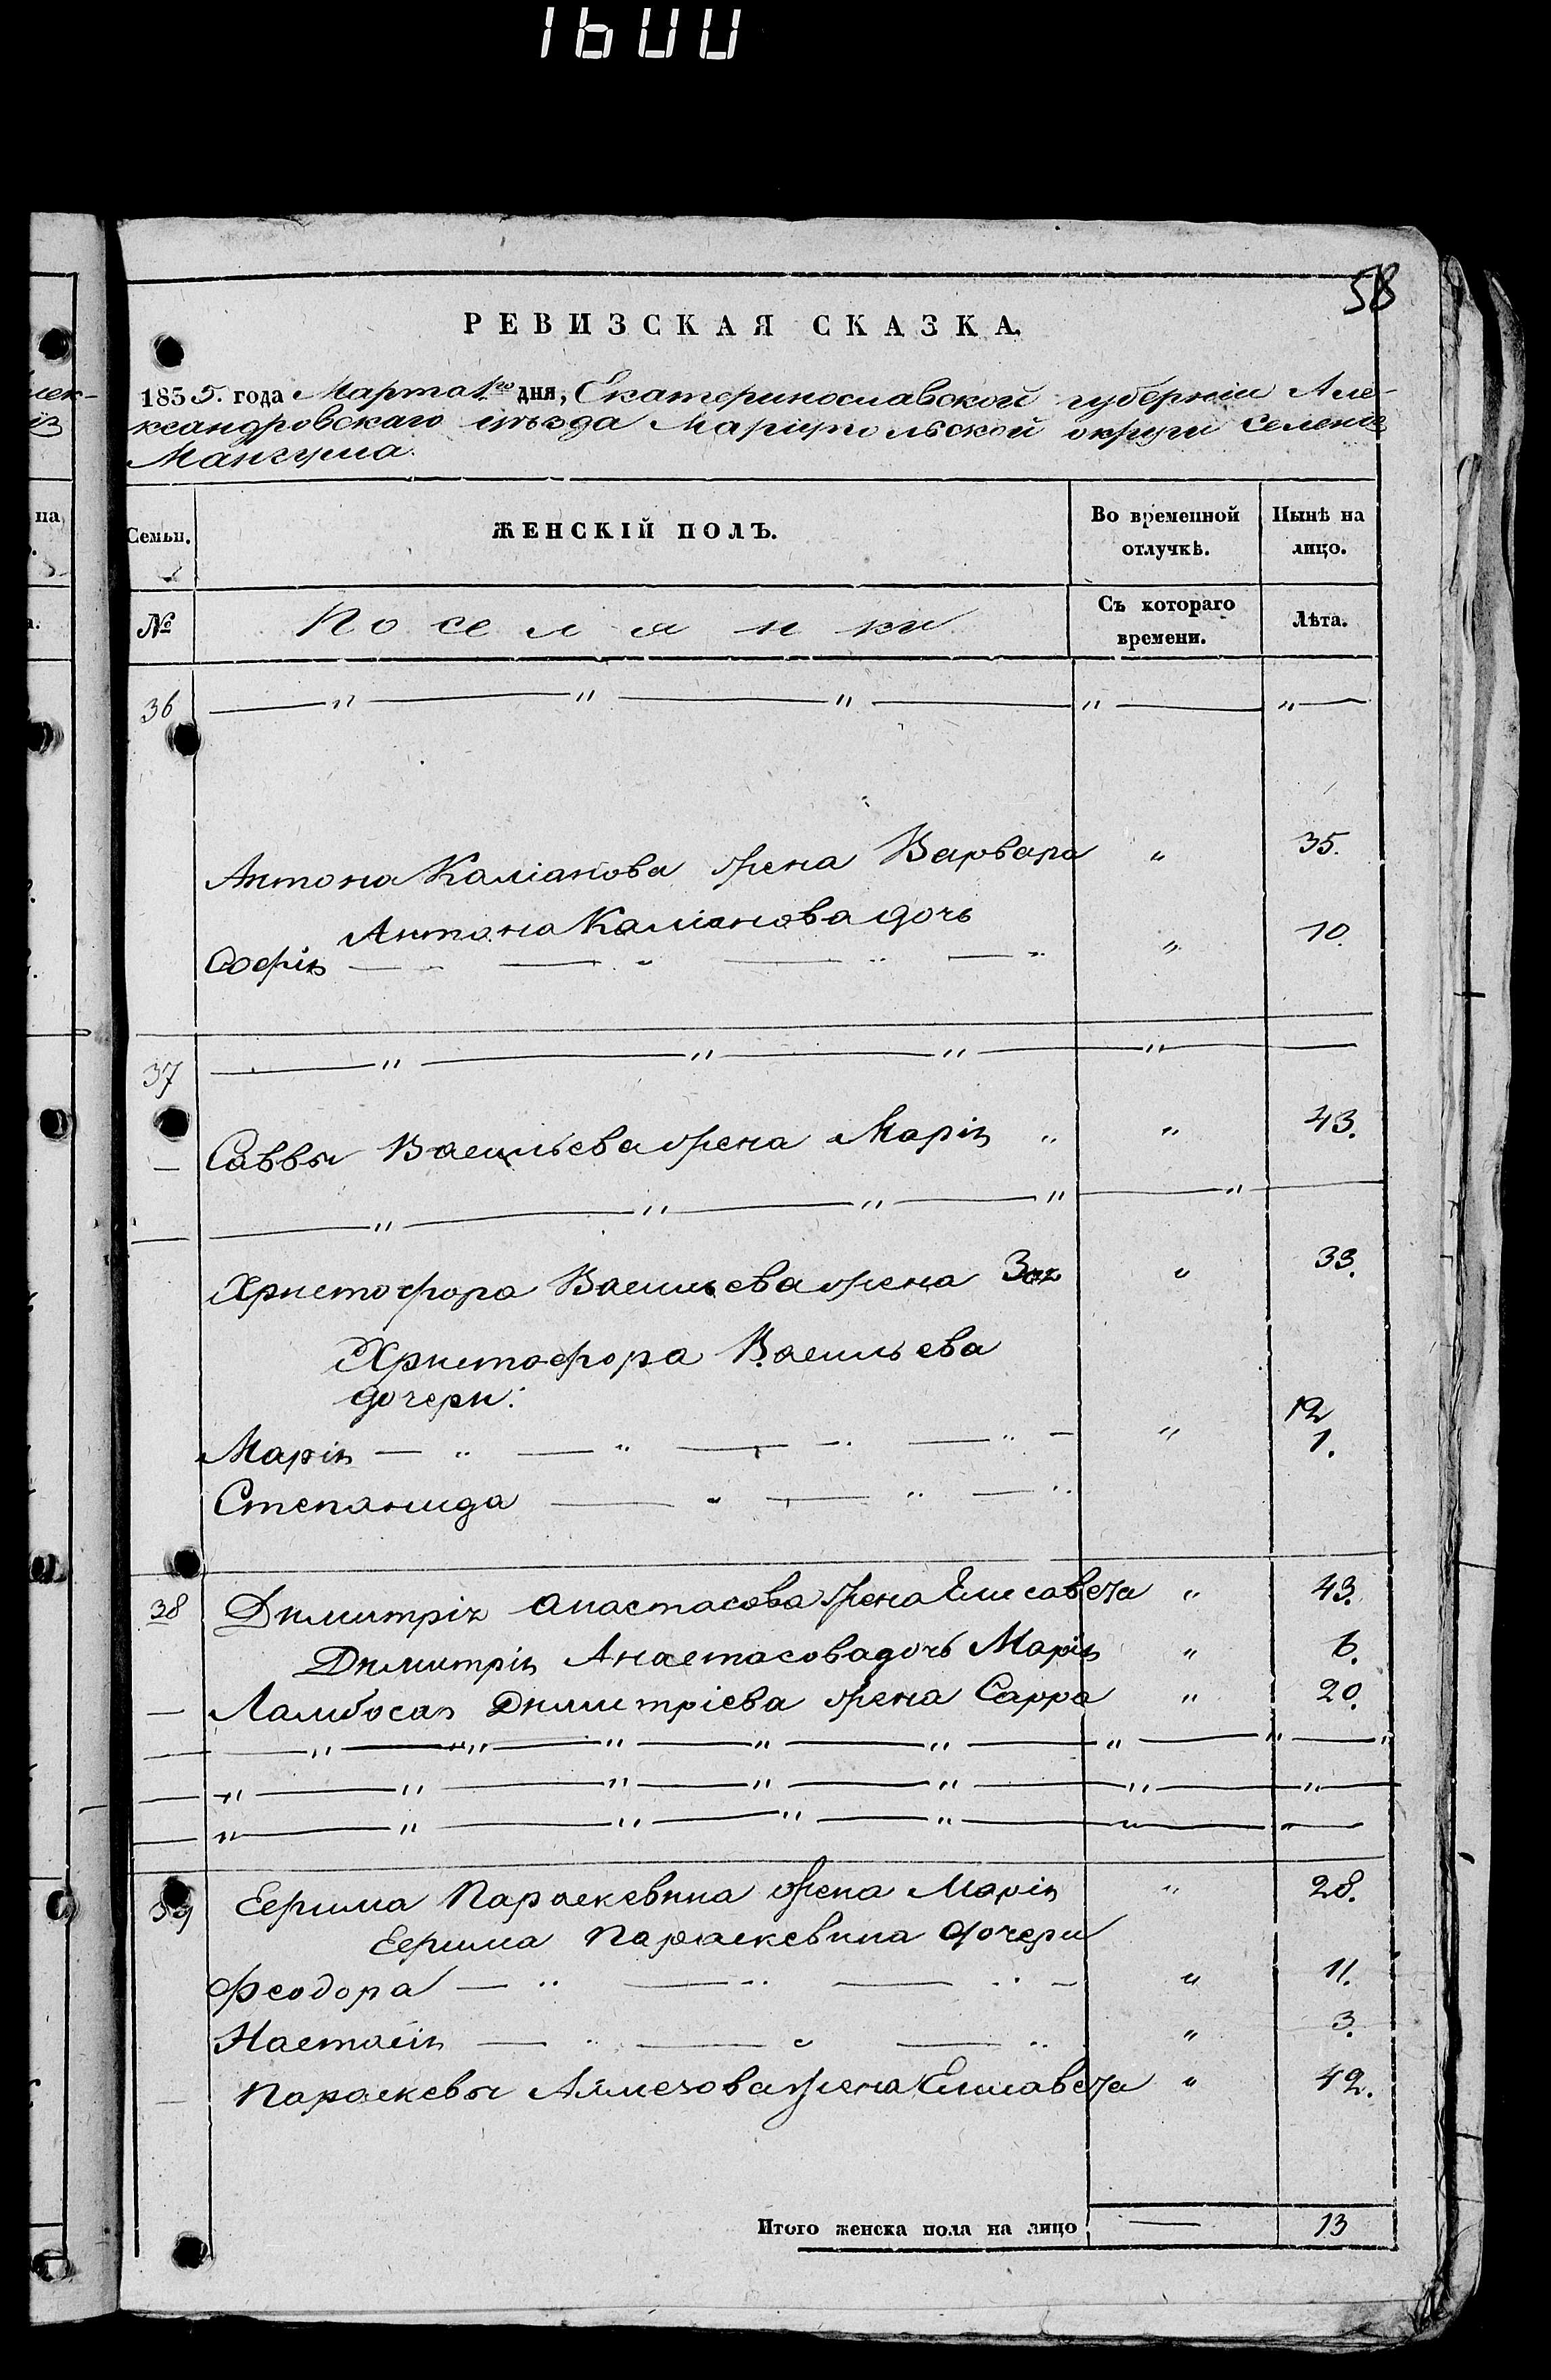 1600
58
РЕВИЗСКАЯ СКАЗКА.
1855. года Марта 1го дня, Екатеринославской губерніи Але-
ксандровскаго уѣзда Маріупольской округи Селенія
Мангуша.
Семьи.
ЖЕНСКІЙ ПОЛЪ.
Во временной отлучкѣ.
Нынѣ на лицо.
№
Поселянки
Съ котораго времени.
Лѣта.
36 — " — " — " — " — " —
Антона Каліанова жена Варвара " 35.
Антона Каліанова дочь
Софія — " — " — " — " " 10.
37 — " — " — " — " —
— Саввы Васильева жена Марія " " 43.
— — " — " — " — " — " —
Христофора Васильева жена Зоя " 33.
Христофора Васильева
дочери:
Марія — " — " — " — " — " 12
1.
Степанида — " — " — "
38 Димитрія Анастасова жена Елисавета " 43.
Димитрія Анастасова дочь Марія " 6.
— Ламбоса Димитріева жена Сарра " 20.
— — " — " — " — " — " — " — " — "
— " — " — " — " — " — " — " —
— " — " — " — " — " — " — " —
39 Еерима Параскевина жена Марія " 28.
Еерима Параскевина дочери
Феодора — " — " — " — " 11.
Настасія — " — " — " " 3.
— Параскевы жена Елисавета " 42.
Итого женска пола на лицо — 13